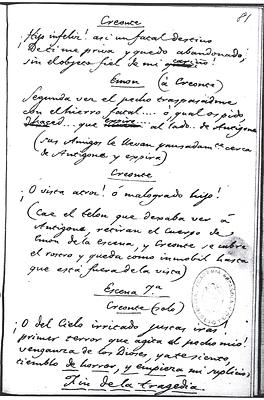 81
Creonte
¡Hijo infeliz! así un fatal destino
De ti me priva y quedo abandonado,
sin el objeto fiel de mi cariño!
Emon (à Creonte)
Segunda vez el pecho traspasadme
con el hierro fatal.... ó, qual os pido,
haced... que espire al lado de Antigone
(sus Amigos le llevan pausadamte cerca
de Antigone y espira)
Creonte
¡O vista atroz! ó malogrado hijo!
(Cae el telon que dexaba ver à
Antigone, retiran el cuerpo de
Emon de la escena, y Creonte se cubre
el rostro y queda como inmobil hasta
que está fuera de la vista)
Escena 7a
Creonte (solo)
¡O del Cielo irritado justas iras!
primer terror que agita el pecho mio!
venganza de los Dioses, ya te siento,
tiemblo de horror, y empieza mi suplicio.
Fin de la tragedia